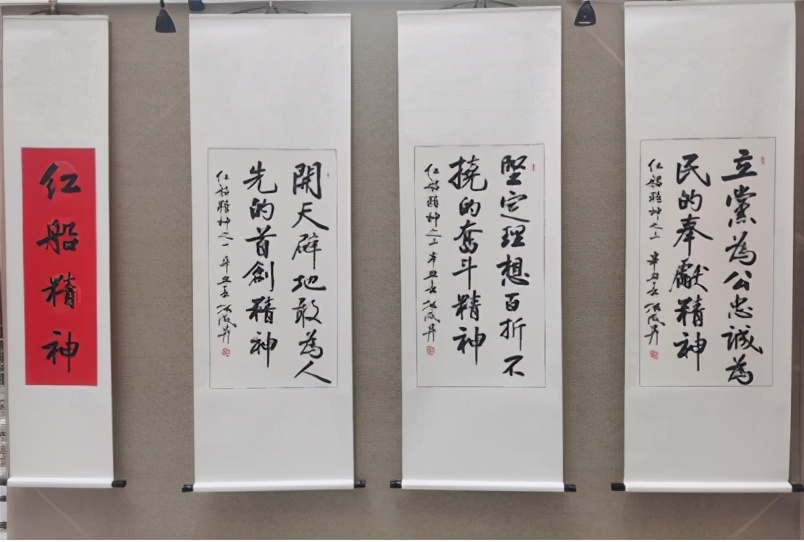 红船精神
開天辟地敢為人
先的首創精神
红船精神之一 辛丑春
堅定理想百折不
撓的奮斗精神
红船精神之二 辛丑春
立黨為公忠誠為
民的奉獻精神
红船精神之三 辛丑春